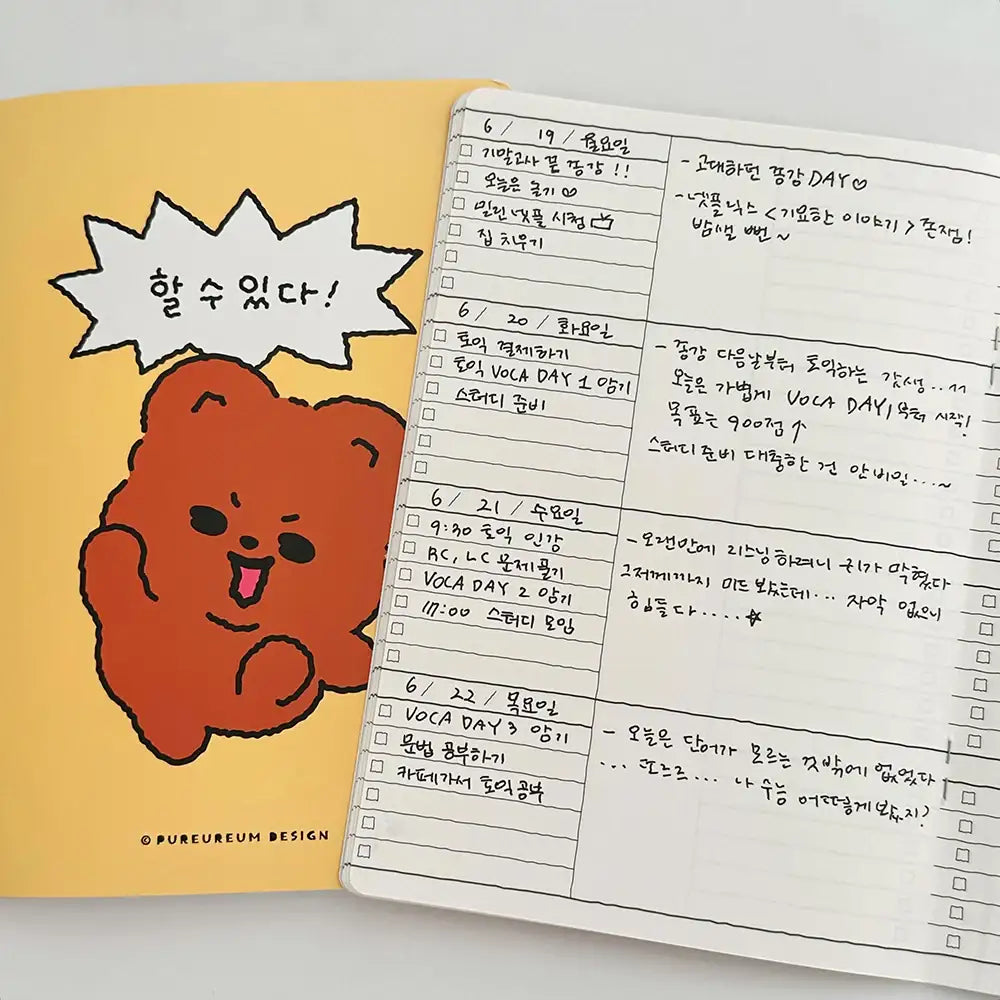 할 수 있다!
© PUREUREUM DESIGN
6 / 19 / 월요일
기말고사 끝 종강 !!
오늘은 놀기♡
밀린 넷플 시청
집 치우기
- 고대하던 종강 DAY♡
- 넷플닉스 <기묘한 이야기> 존잼!
밤샐 뻔~
6 / 20 / 화요일
토익 결제하기
토익 VOCA DAY 1 암기
스터디 준비
- 종강 다음날부터 토익하는 갓생..ㄲ
오늘은 가볍게 VOCA DAY1부터 시작!
목표는 900점↑
스터디 준비 대충한 건 안비밀...~
6 / 21 / 수요일
9:30 토익 인강
RC, LC 문제풀기
VOCA DAY 2 암기
17:00 스터디 모임
- 오랜만에 리스닝하려니 귀가 막혔다
그저께까지 미드 봤는데... 자막 없으니
힘들다....☆
6 / 22 / 목요일
VOCA DAY 3 암기
문법 공부하기
카페가서 토익공부
- 오늘은 단어가 모르는 것밖에 없었다
... 또르르... 나 수능 어떠떻게봤지?